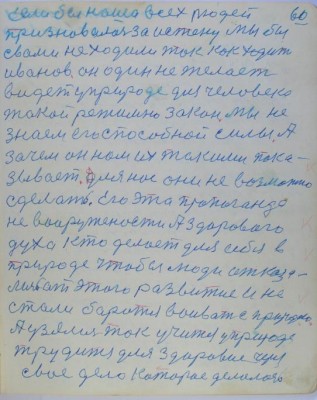 60
всех людей
признавалась за истену. Мы бы
с вами не ходили так как ходит
Иванов, он один не желает
видеть у природе для человека
такой режимно закон. Мы не
знаем его способной силы. А
зачем он нам их такими пока-
зывает. Для нас они не возможно
сделать. Его эта пропаганда
не вооружености А здорового
духа кто делает для себя в
природе чтобы люди отказа-
от этого развитие и не
стали боротся воевать с природою
А узялись так учится у природе
трудится для здоровие
свое дело которое делалось